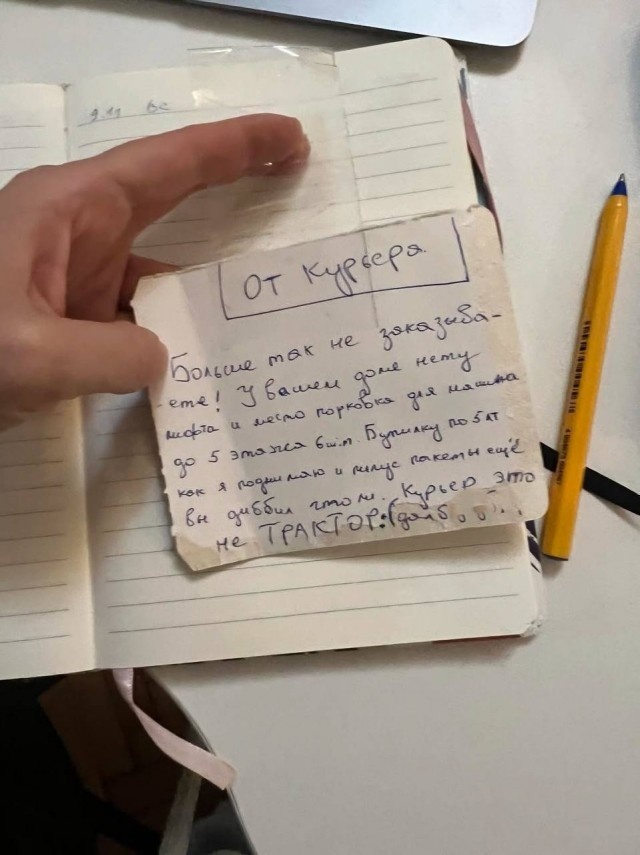 9.11 Вс
От Курьера
Больше так не заказыва-
-ете! У вашем доме нету
лифта и место порковка для машина
до 5 этажа 6 ш.п. Бутилку по 5 лт
как я поднимаю и плус пакеты ещё
вы диббил што ли. Курьер это
не ТРАКТОР:(